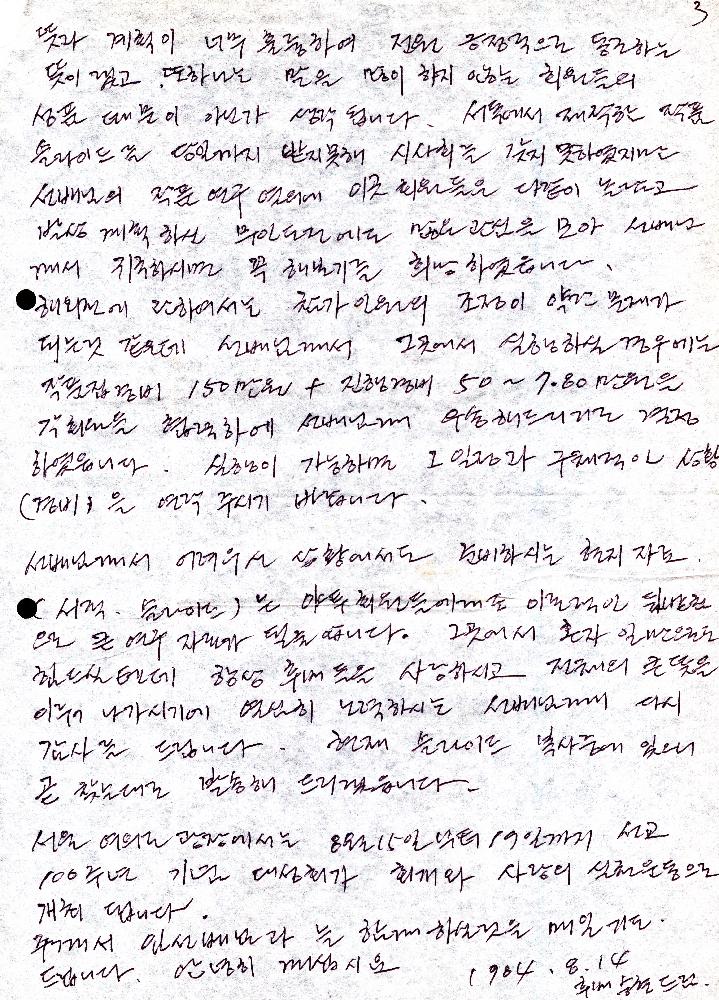 3
뜻과 계획이 너무 훌륭하여 전원 긍정적으로 동조하는
뜻이 깊고 또하나는 말을 많이 하지 안하는 회원들의
성품 때문이 아닌가 생각 됩니다. 서독에서 제작한 작품
슬라이드를 당일까지 받지못해 시사회를 갖지 못하였지만
선배님의 작품 연구 열의에 이곳 회원들은 다같이 놀라고
발상 계획 하신 무인도전에도 많은 관심을 모아 선배님
께서 귀국하시면 꼭 해보기를 희망 하였읍니다.
해외전에 관하여서는 참가인원의 조정이 약간 문제가
되는것 같은데 선배님께서 그곳에서 실행하실 경우에는
작품집경비 150만원 + 진행경비 50~7.80만원을
각회원들 협력하에 선배님께 우송해드리기로 결정
하였읍니다. 실행이 가능하면 그 일정과 구체적인 상황
(경비)을 연락 주시기 바랍니다.
선배님께서 어려우신 상황에서도 준비하시는 현지 자료.
(서적. 슬라이드)는 야투회원들에게도 이론적인 뒷받침
으로 큰 연구 자료가 될줄 압니다. 그곳에서 혼자 일만으로도
힘드실텐데 항상 후배들을 사랑하시고 전체의 큰뜻을
이루어 나가시기에 열심히 노력하시는 선배님께 다시
감사를 드립니다. 현재 슬라이드 복사중에 있으니
곧 찾는대로 발송해 드리겠읍니다.
서울 여의도 광장에서는 8월15일부터 19일까지 선교
100주년 기념 대성회가 회개와 사랑의 실천운동으로
개최 됩니다.
주께서 임선배님과 늘 함께 하실것을 매일 기도
드립니다. 안녕히 계십시요
1984. 8. 14
후배 드림.